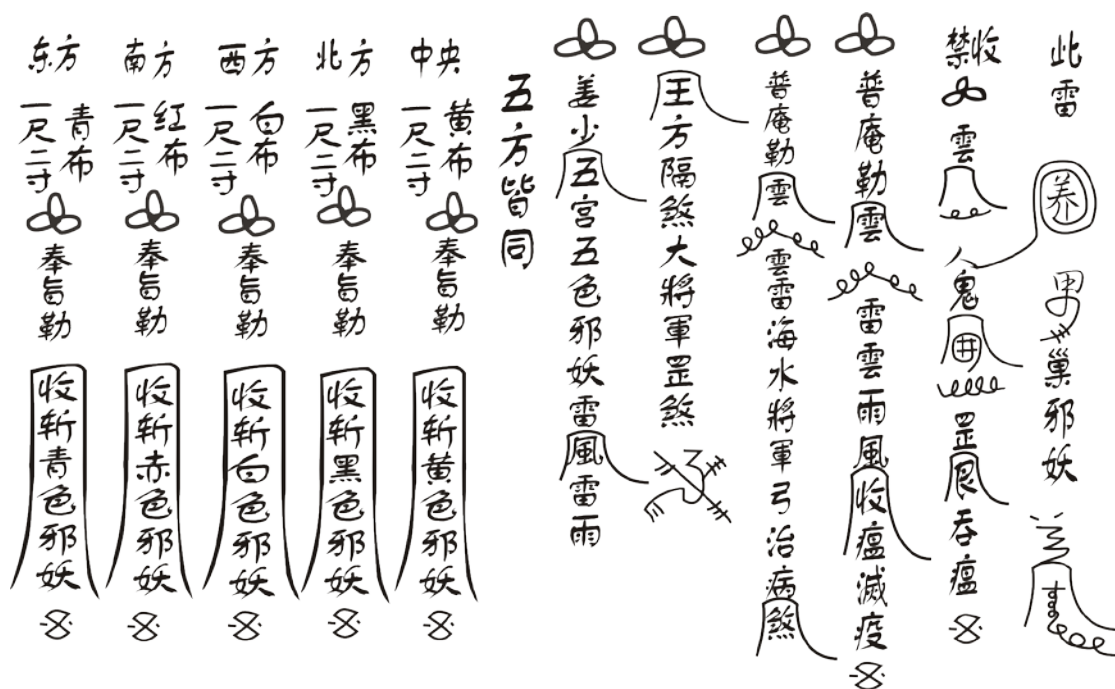 此雷养男巢邪妖
禁收雲人鬼井罡吞瘟
普庵勒雲雷雲雨風收瘟滅疫
普庵勒雲雲雷海水將軍弓治病煞
王方隔煞大將軍罡煞
姜少五宫五色邪妖雷風雷雨
五方皆同
中央
黄布
一尺二寸
奉旨勒
收斩黄色邪妖
北方
黑布
一尺二寸
奉旨勒
收斩黑色邪妖
西方
白布
一尺二寸
奉旨勒
收斩白色邪妖
南方
红布
一尺二寸
奉旨勒
收斩赤色邪妖
东方
青布
一尺二寸
奉旨勒
收斩青色邪妖